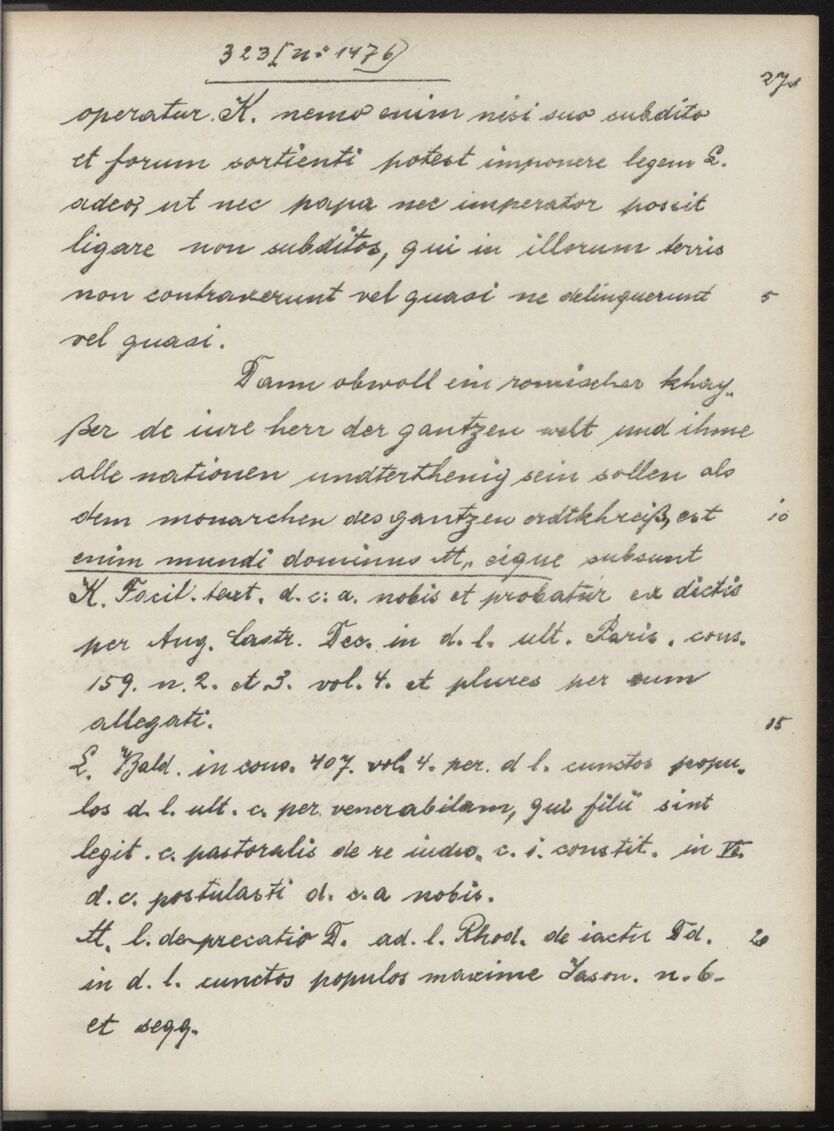 323 [n: 1476)
27
operatur. K. nemo enim nisi suo subdito
et forum sortienti potest imponere legem L.
adeo, ut nec papa nec imperator possit
ligare non subditos, qui in illorum terris
non contraxerunt vel quasi ne delinquerunt 5
vel quasi.
Dann obwoll ein romischer khay„
ßer de iure herr der gantzen welt und ihme
alle nationen undterthenig sein sollen als
dem monarchen des gantzen erdtkhreiß, est 10
enim mundi dominus M„ eique subsunt
K. Facit. text. d. c. a. nobis et probatur ex dictis
per Aug. Castr. Dec. in d. l. ult. Paris. cons.
159. n. 2. et 3. vol. 4. et plures per eum
allegati. 15
L. Bald. in cons. 407. vol. 4. per. d l. cunctos popu„
los d. l. ult. c. per venerabilem, qui filii sint
legit. c. pastoralis de re iudic. c. i. constit. in VI.
d. c. postulasti d. c. a nobis.
M. l. deprecatio D. ad. l. Rhod. de iactu Dd. 20
in d. l. cunctos populos maxime Jason. n. 6.
et seqq.